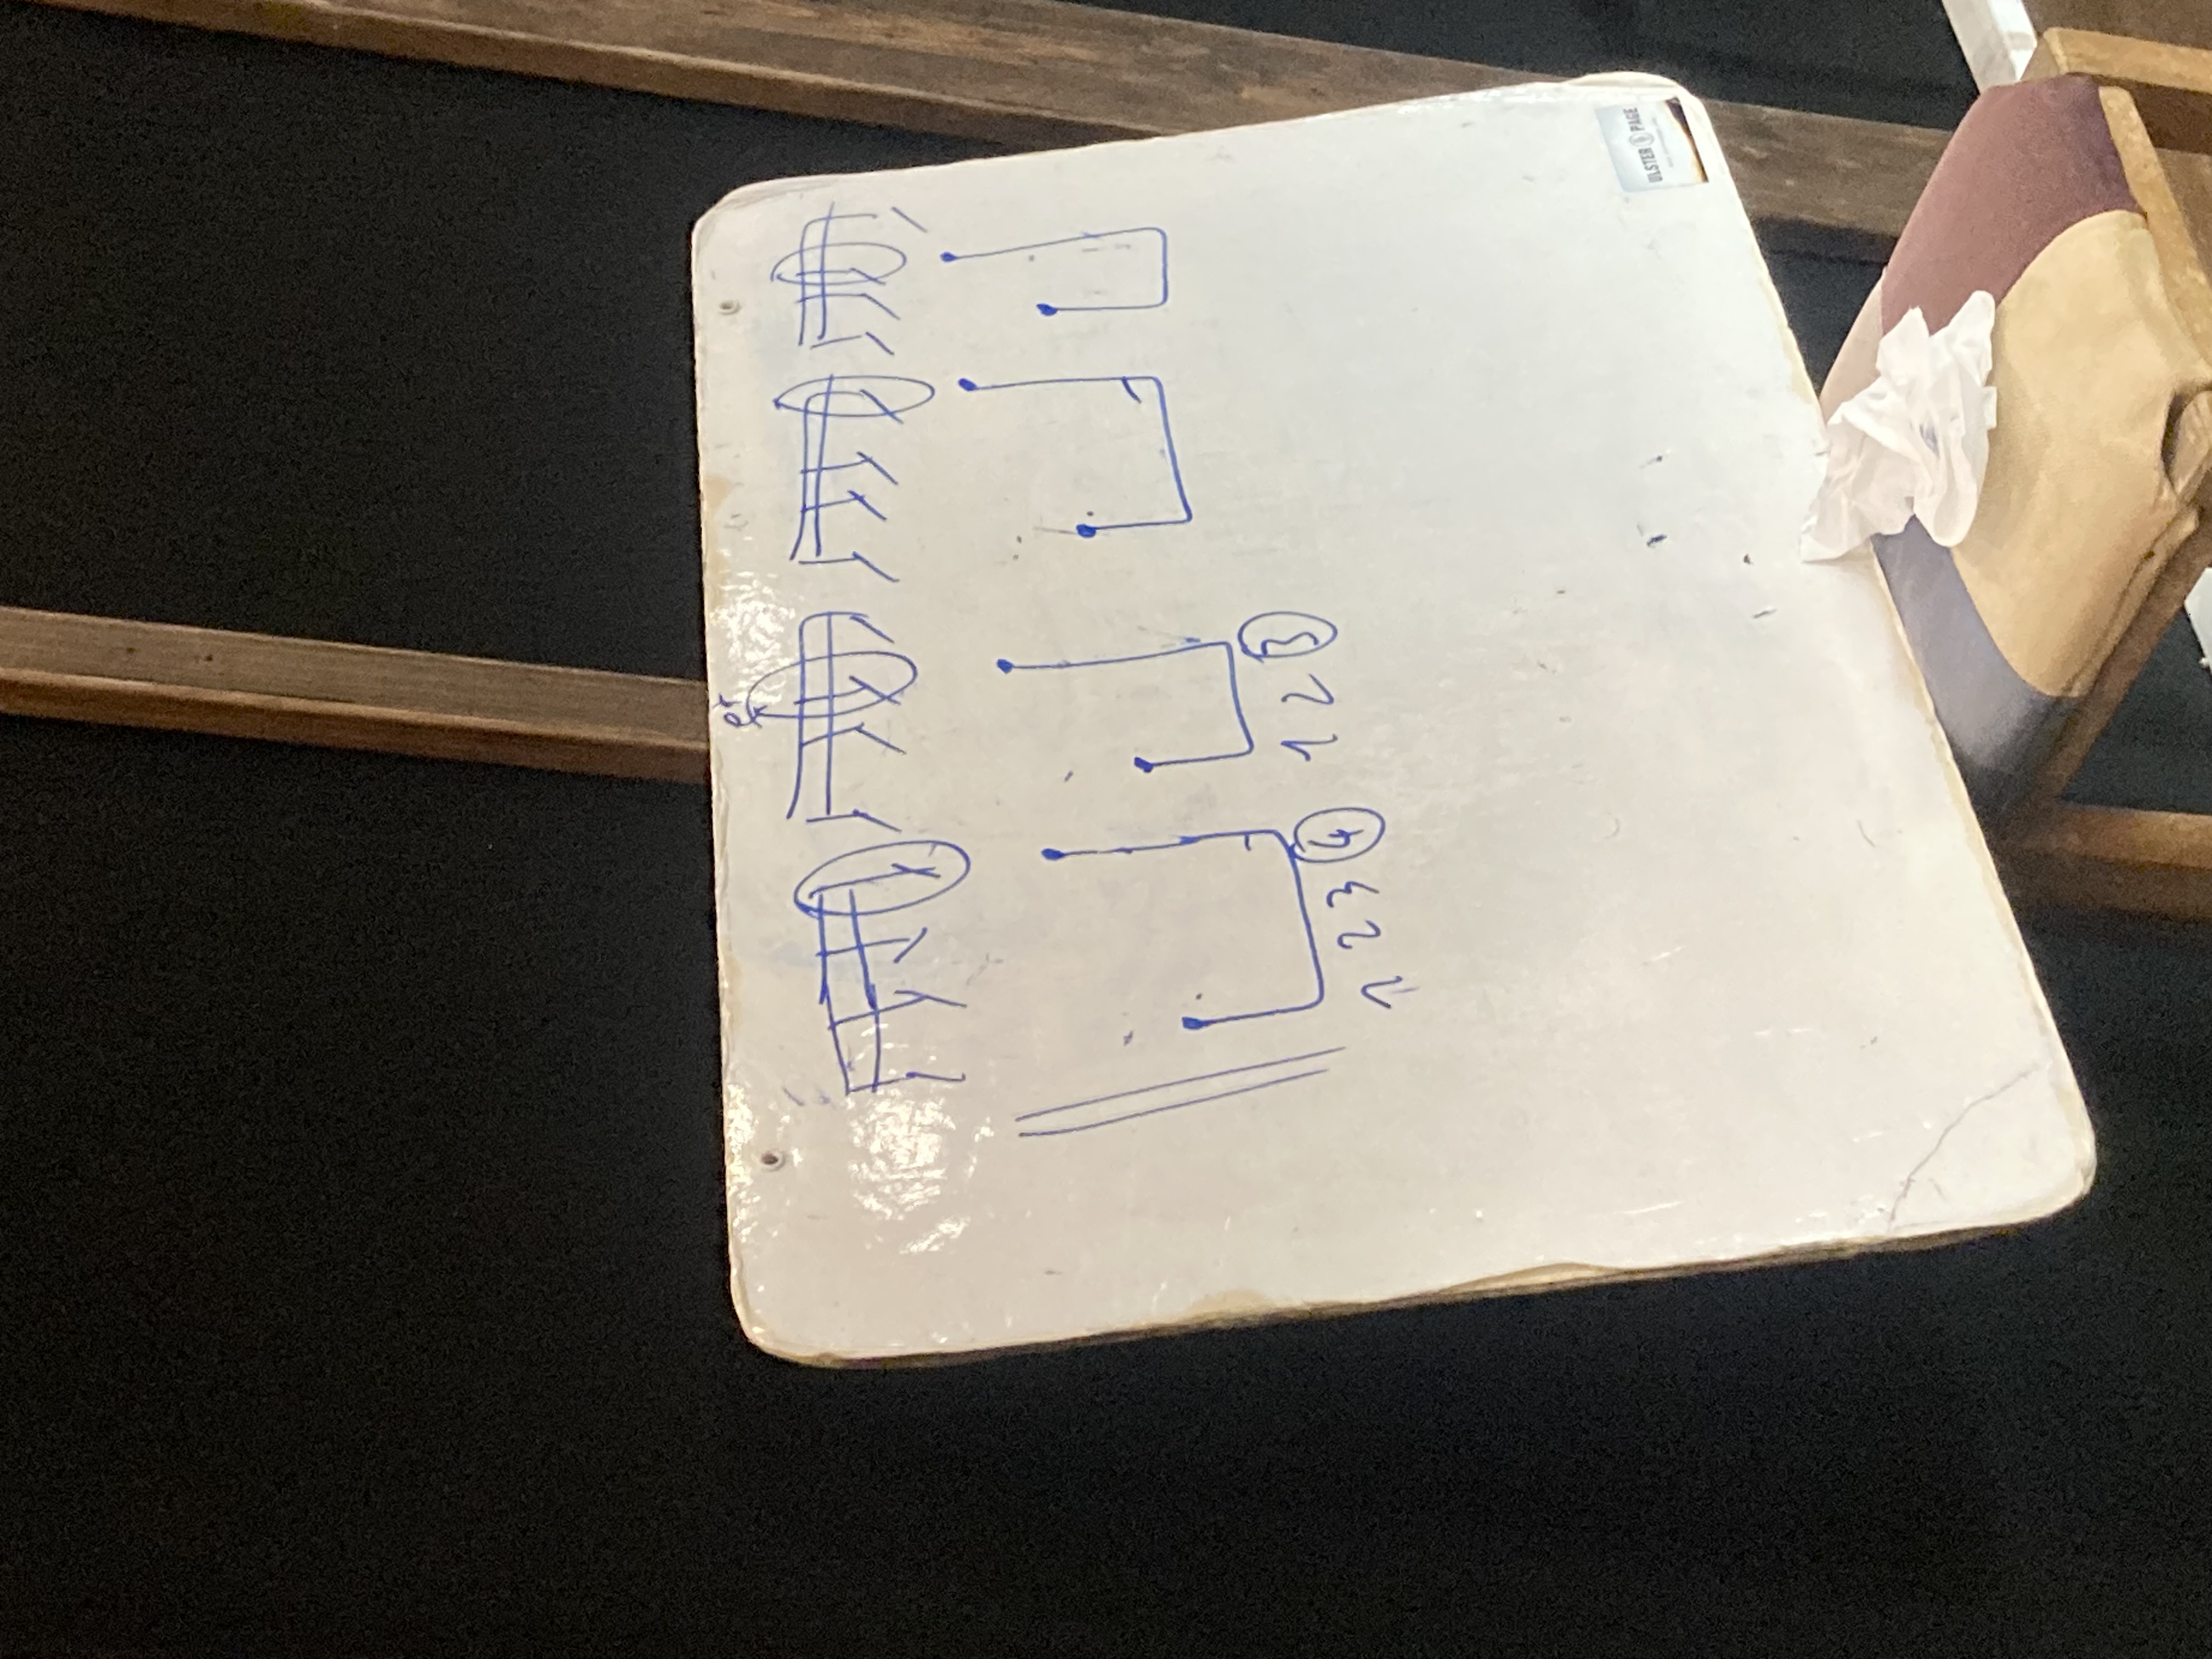 et
1 2 3 4 1 2 3
ULSTER PAGE